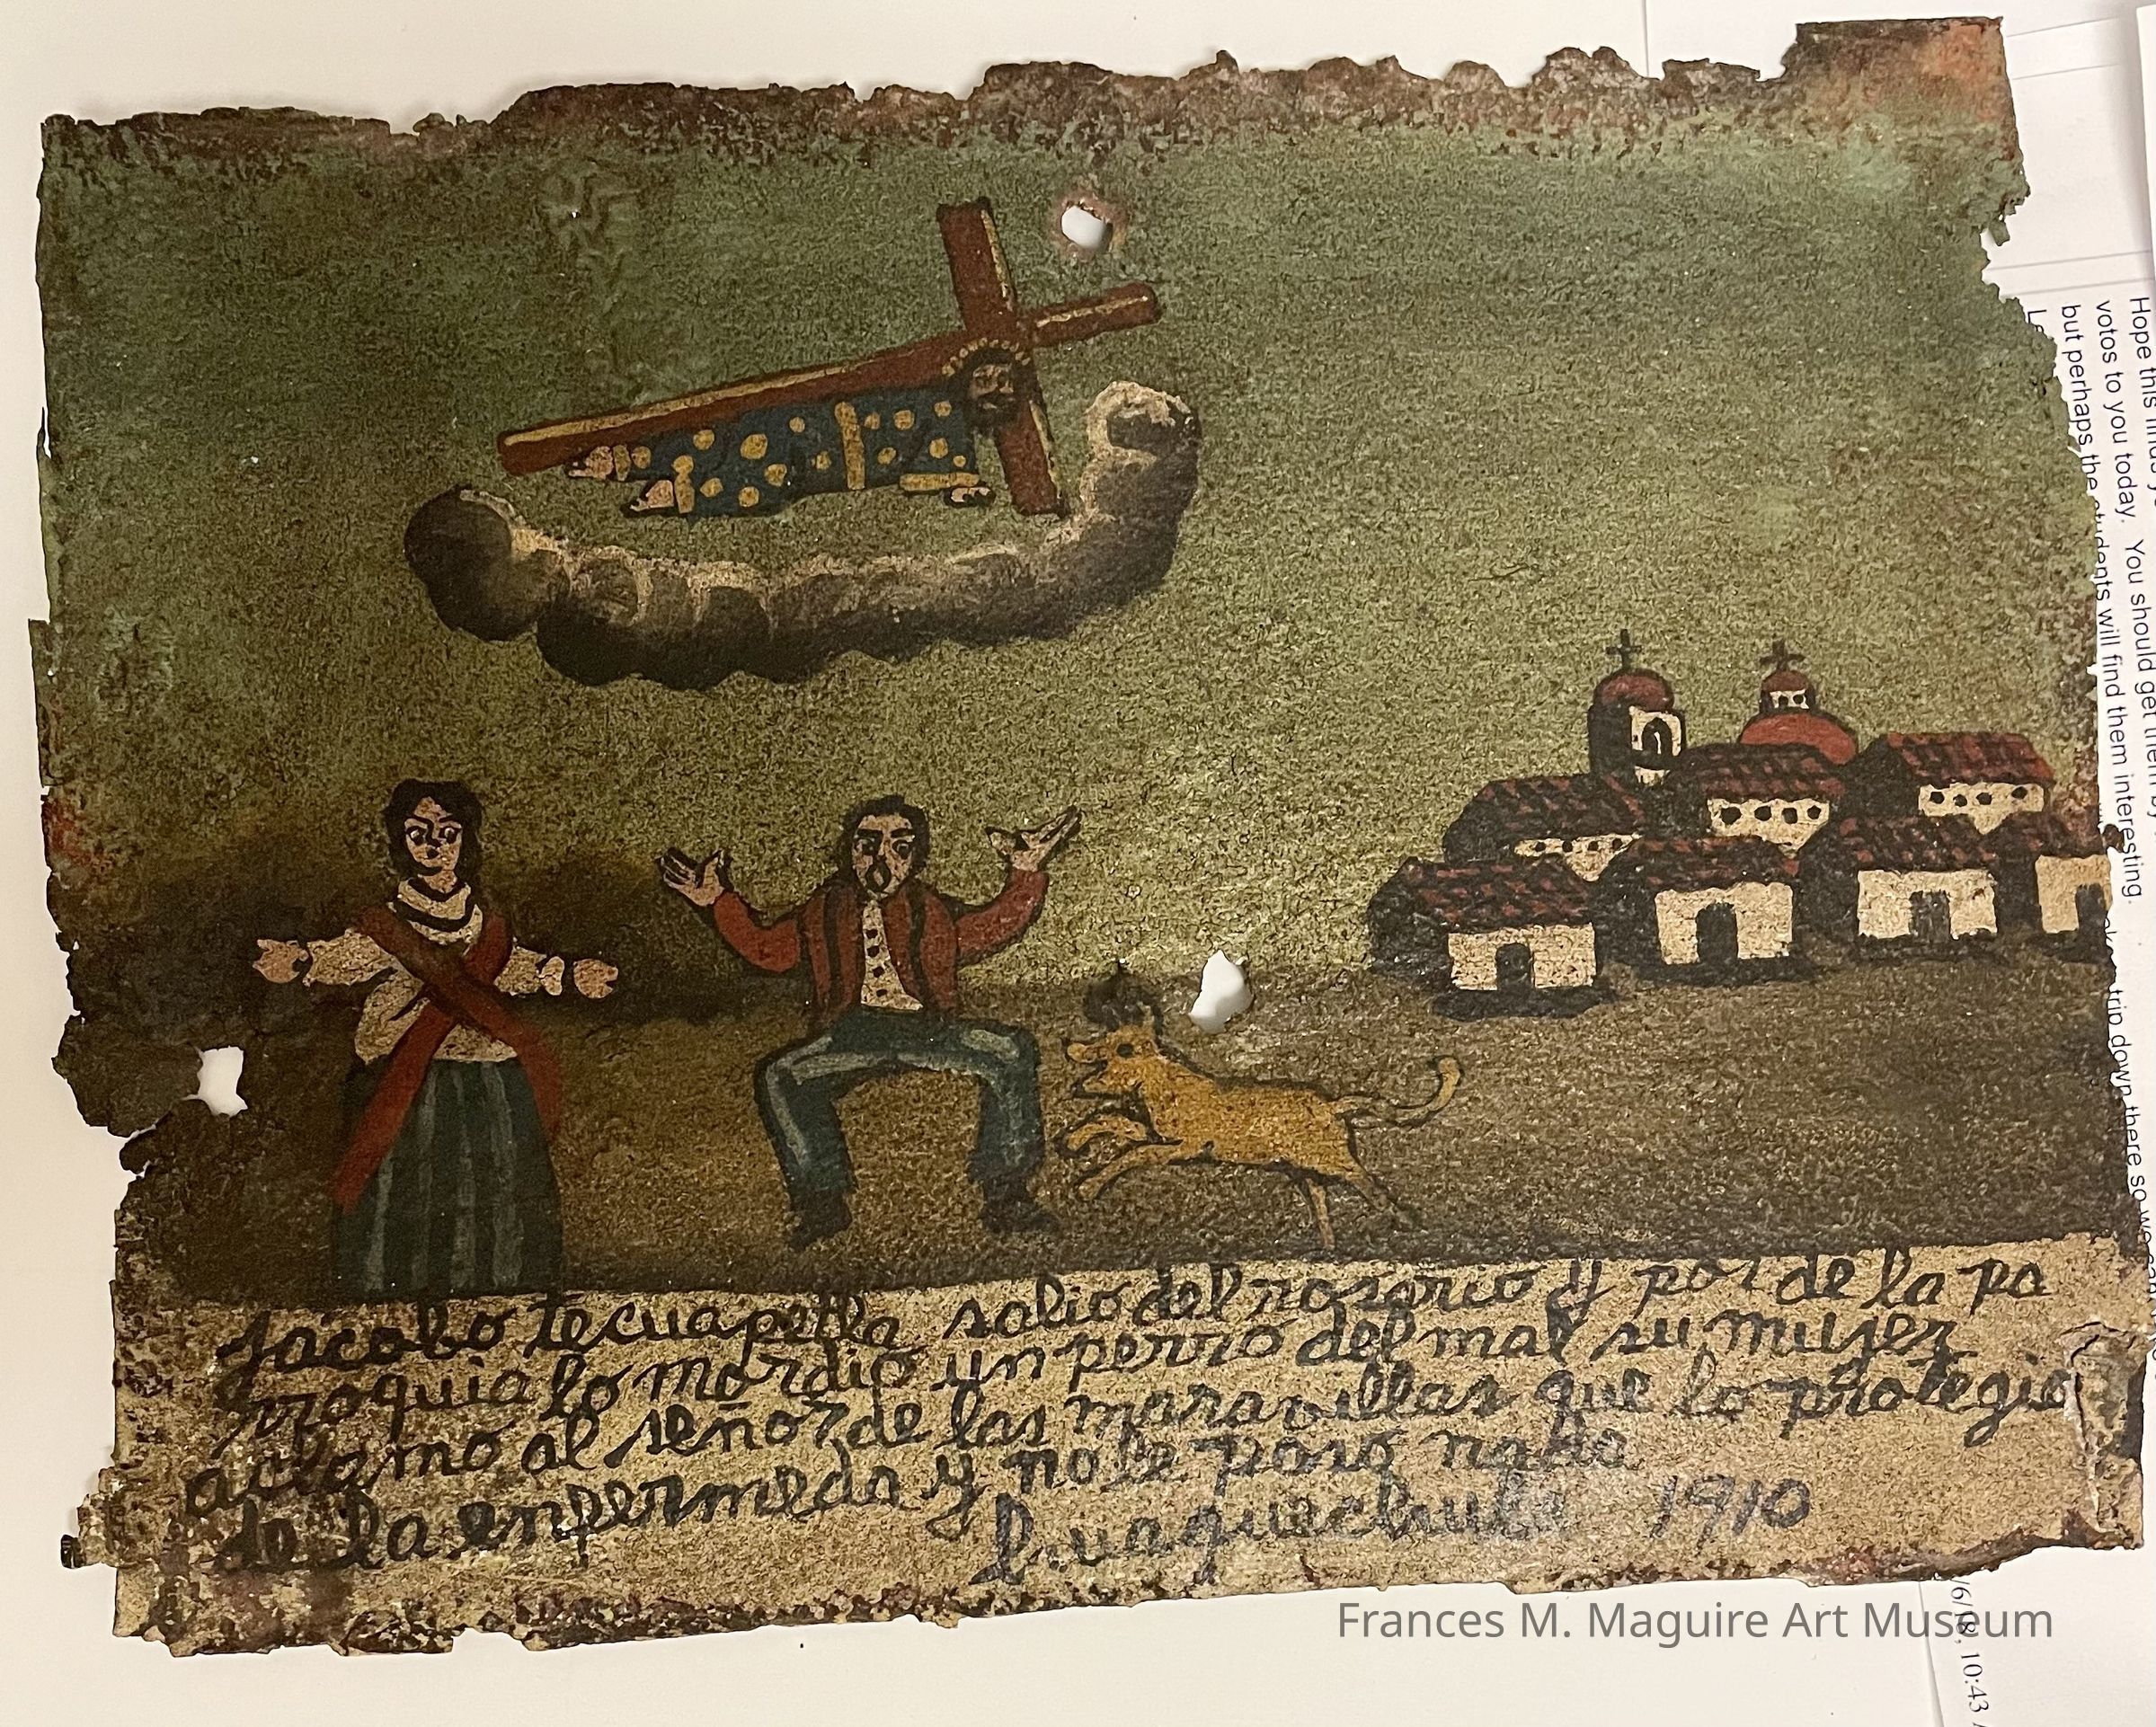 Jacobo tecuapetla salio del rosario y por de la pa
rroquia lo mordio un perro del mal su mujer
aclamo al señor de las maravillas que lo protegio
de la enfermeda y no le paso nada
1910
Frances M. Maguire Art Museum
Hope this
votos to you today. You should get them by
but perhaps the students will find them interesting.
trip down there so we can
/6/18, 10:43